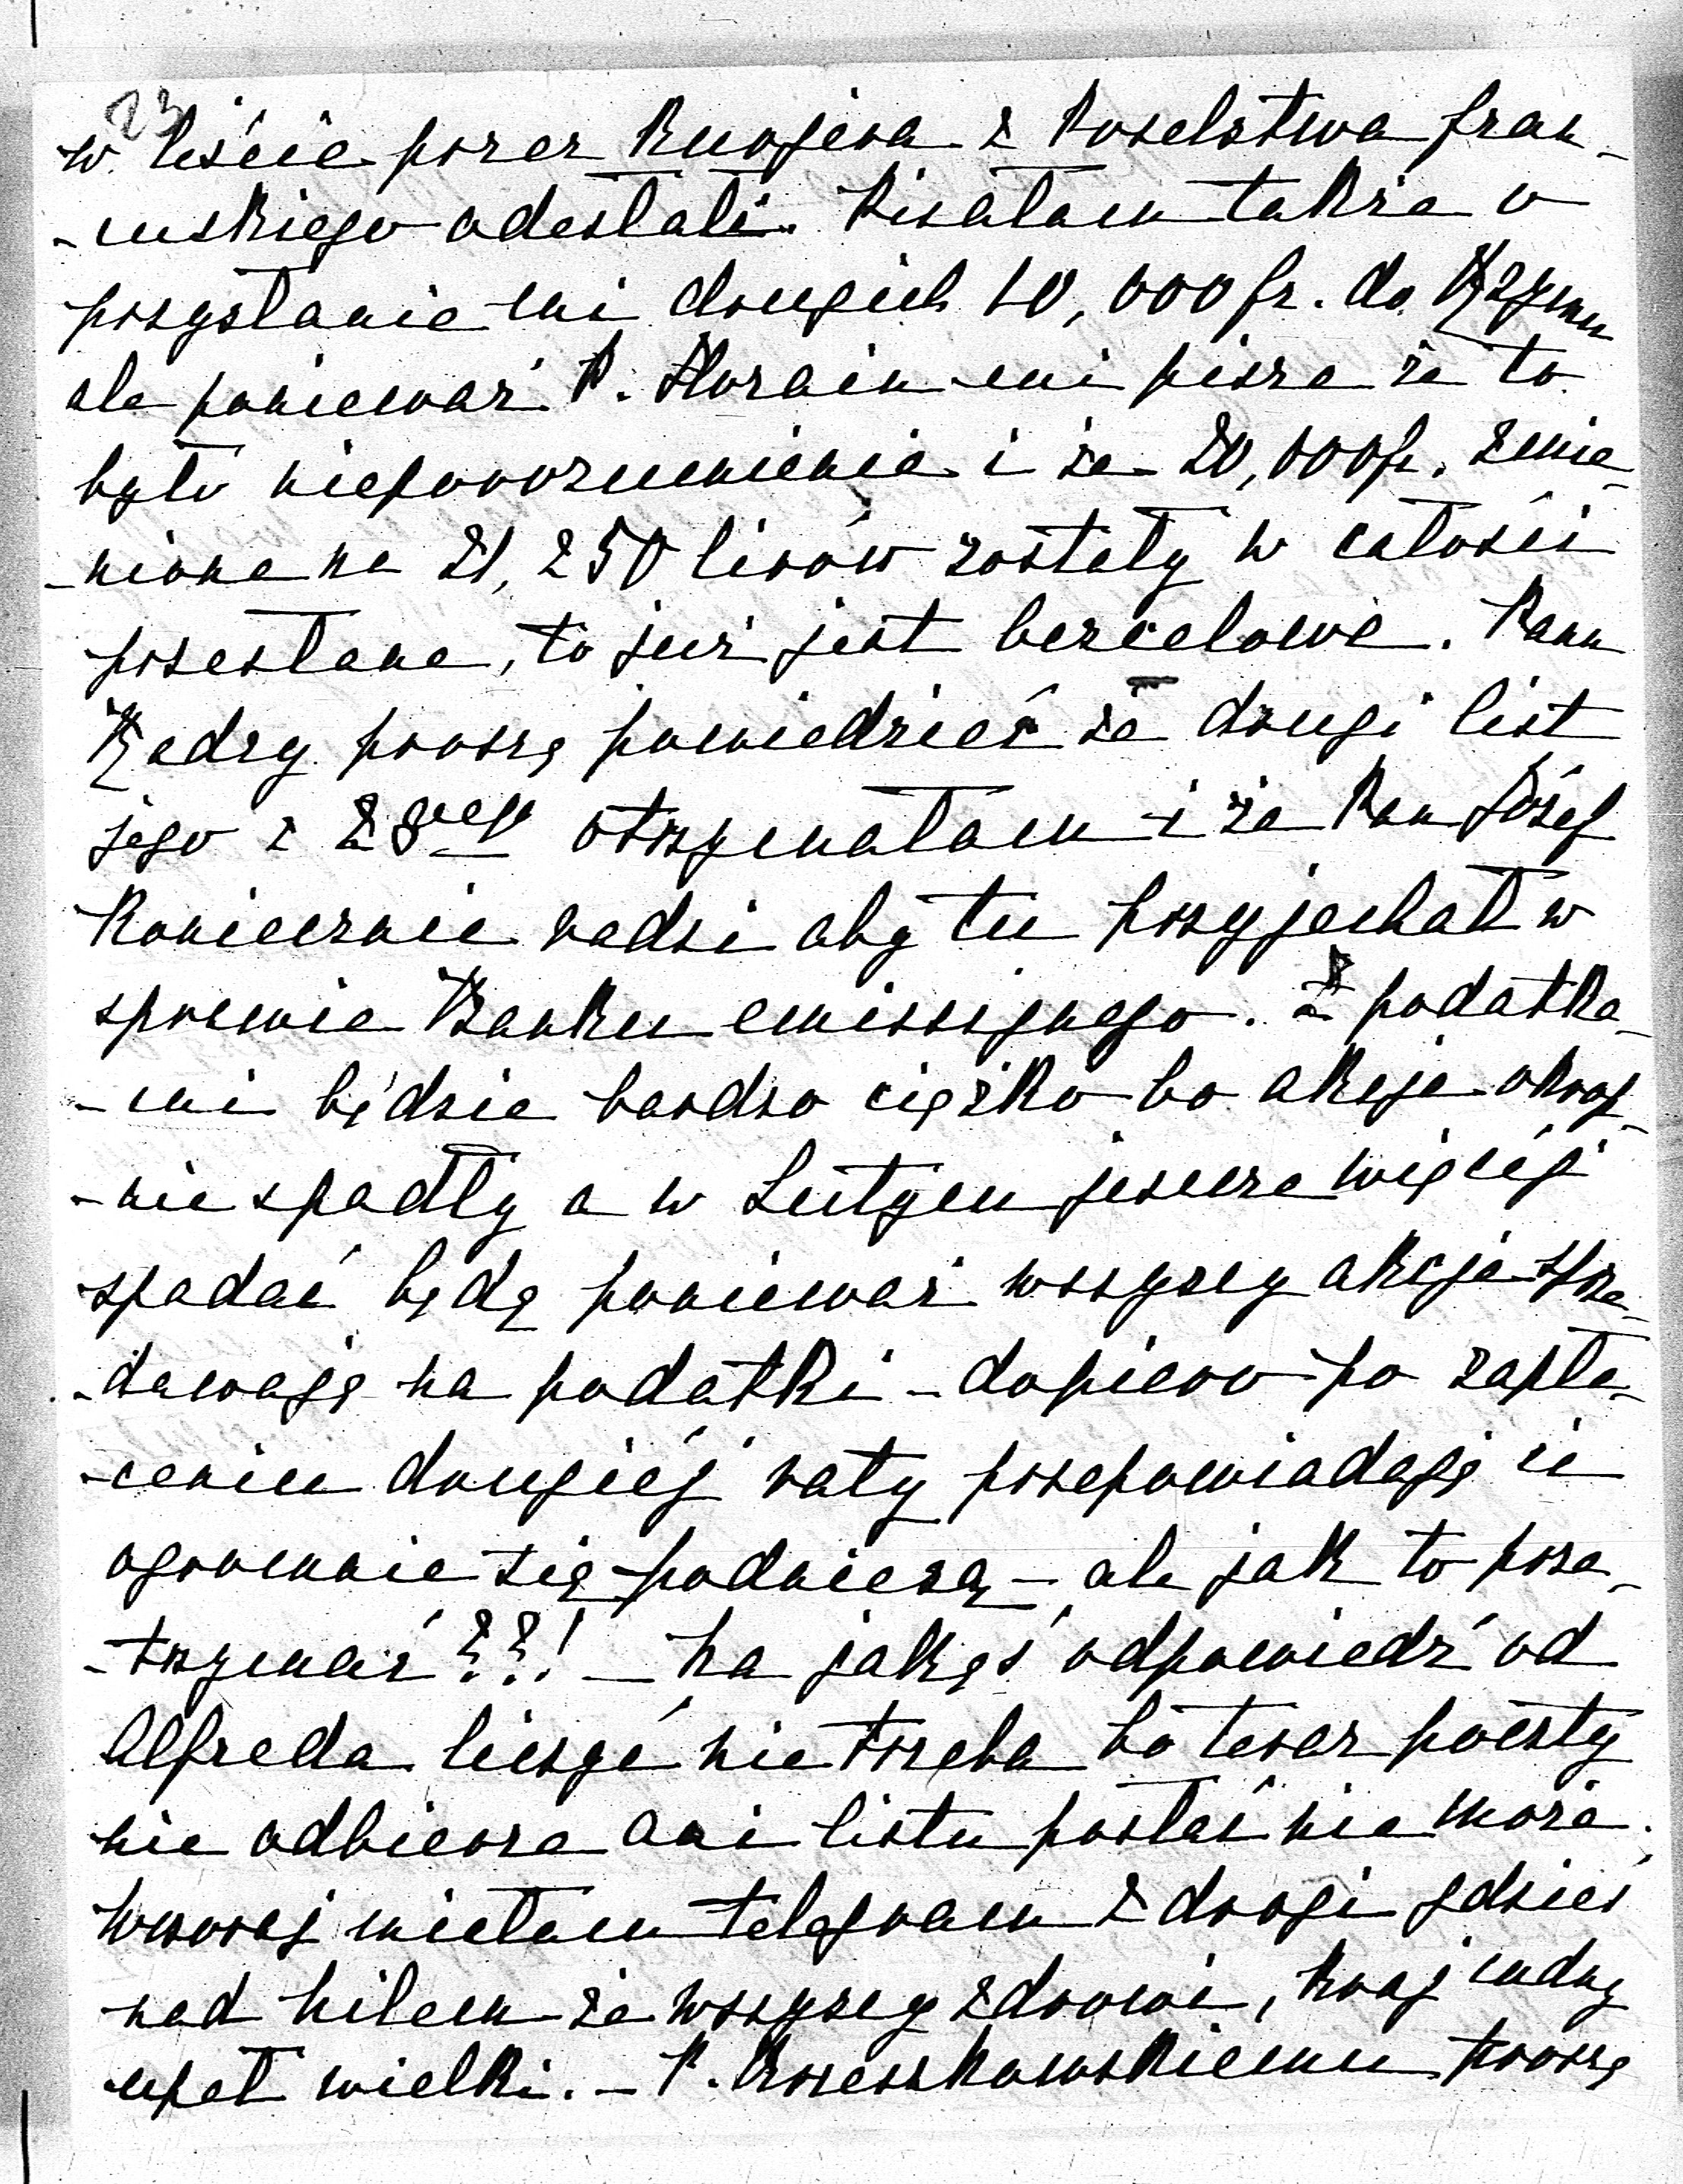 23
w liście przez Kuryera z Poselstwa fran-
-cuskiego odesłali. Pisałam także o
przysłanie mi drugich 10,000 fr. do Rzymu
ale ponieważ P. Horain mi pisze że to
było nieporozumienie i że 20,000 fr. zmie-
-nione na 21,250 lirów zostały w całości
przesłane, to już jest bezcelowe. Panu
Kędrz. proszę powiedzieć że drugi list
jego z 28ego otrzymałam i że Pan Józef
koniecznie radzi aby tu przyjechał w
sprawie Banku emissijnego. Z podatka-
-mi będzie bardzo ciężko bo akcje okrop-
-nie spadły a w Lutym jeszcze więcéj
spadać będą ponieważ wszyscy akcje sprze-
-dawają na podatki – dopiero po zapła-
-ceniu drugiéj raty przepowiadają iż
ogromnie się podniesą – ale jak to prze-
-trzymać??! – Na jakąś odpowiedź od
Alfreda liczyć nie trzeba bo teraz poczty
nie odbierze ani listu posłać nie może.
Wczoraj miałam telegram z drogi gdzieś
nad Nilem że wszyscy zdrowi, kraj cudny
upał wielki. – P. Krzeszkowskiemu proszę